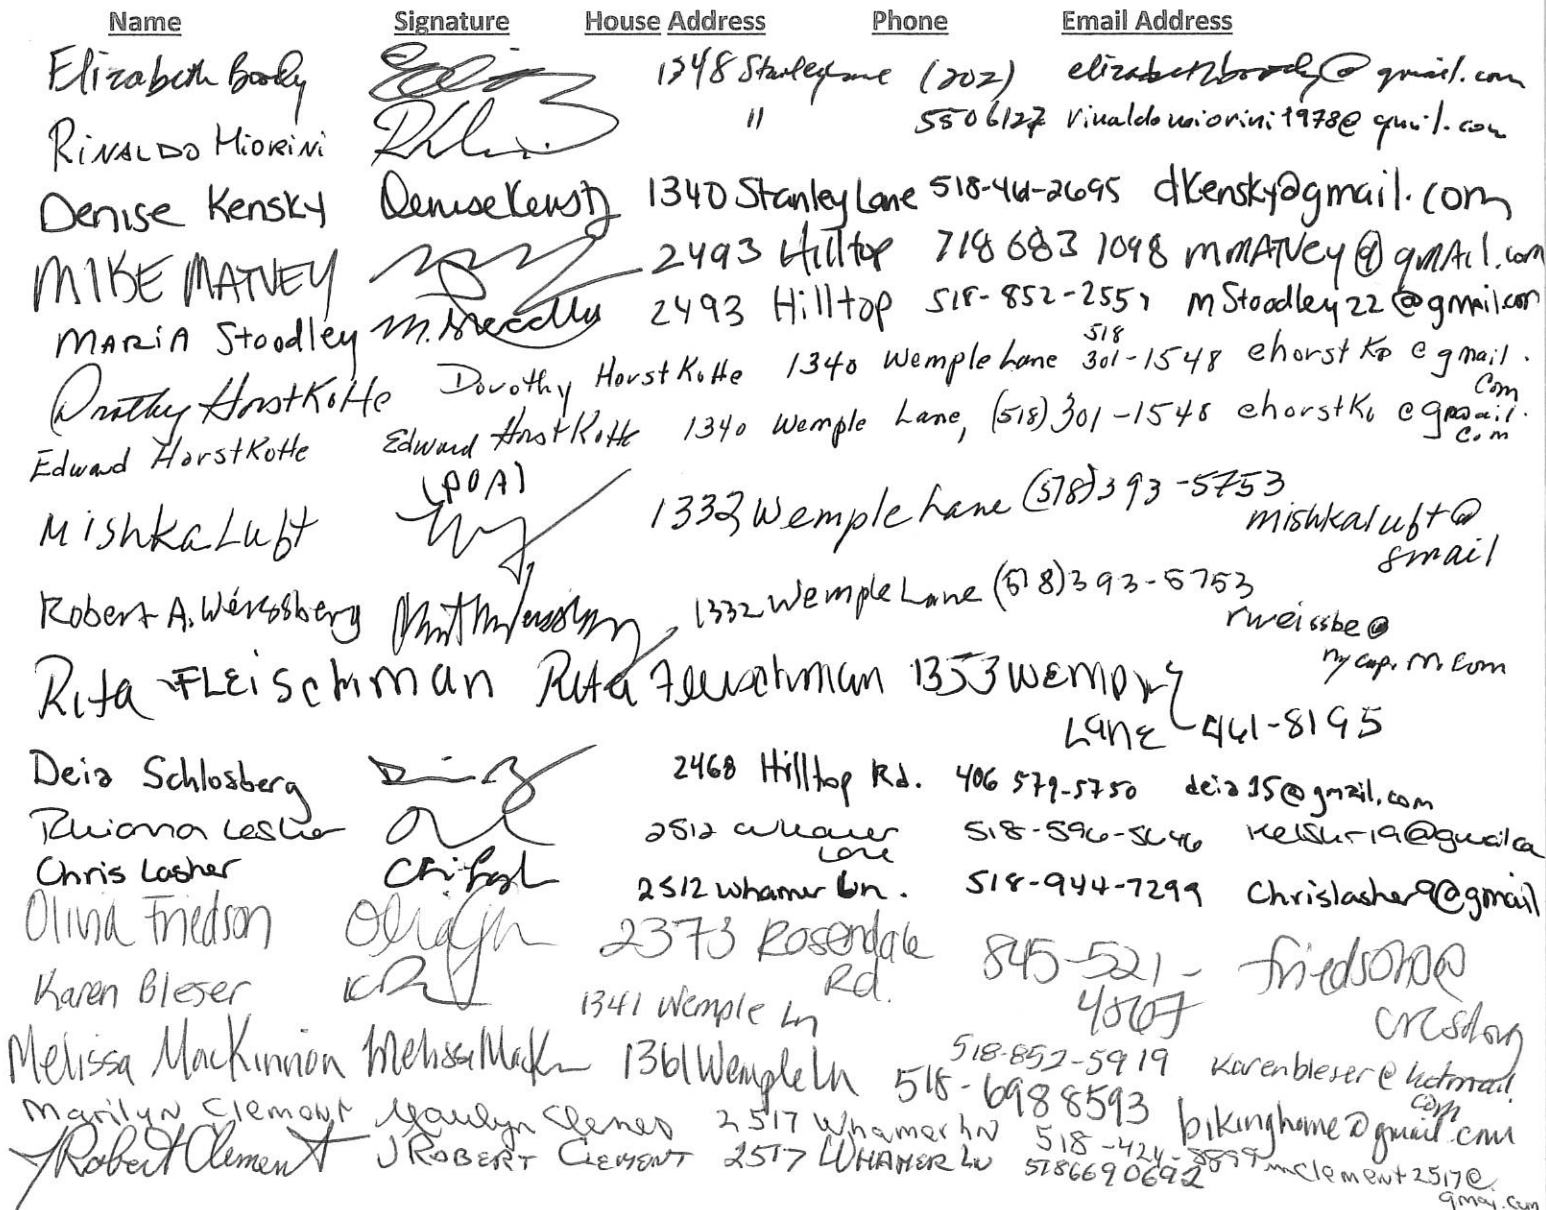 Name Signature House Address Phone Email Address
Elizabeth Boody 1348 Stanley Lane (202) elizabethboody@gmail.com
Rinaldo Miorini " 5506127 rinaldomiorini1978@gmail.com
Denise Kensky Denise Kensky 1340 Stanley Lane 518-461-2695 dkensky@gmail.com
MIKE MATVEY 2493 Hilltop 718 683 1098 mMATVey@gmAil.com
MARiA Stoodley M. Stoodley 2493 Hilltop 518-852-2551 mStoodley22@gmail.com
Dorothy HorstKotte Dorothy HorstKotte 1340 Wemple Lane 518 301-1548 ehorstko@gmail.
com
Edward HorstKotte Edward HorstKotte 1340 Wemple Lane, (518) 301-1548 ehorstko@gmail.
com
(POA)
Mishka Luft 1332 Wemple Lane (518) 393-5753
mishkaluft@
gmail
Robert A. Weissberg 1332 Wemple Lane (518) 393-5753
rweissbe@
nycap.rr.com
Rita FLEiscHman Rita Fleischman 1353 Wemple
Lane 461-8195
Deia Schlosberg 2468 Hilltop Rd. 406 579-5750 deia15@gmail.com
Rhianna Lasher 2512 Whamer 518-596-5646
Lane
Chris Lasher 2512 Whamer Ln. 518-944-7299 Chrislasher9@gmail
Olivia Friedson 2373 Rosendale 845-521- friedsono@
Rd. 4067
Karen Bleser 1341 Wemple Ln
518-852-5919 karenbleser@hotmail.
com
Melissa MacKinnon 1361 Wemple Ln 518-698 8593 bikinghome@gmail.com
Marilyn Clement Marilyn Clement 2517 Whamer Ln 518-424-8899 mclement2517@
gmai.com
J Robert Clement J ROBERT CLEMENT 2517 WHAMER LN 5186690692